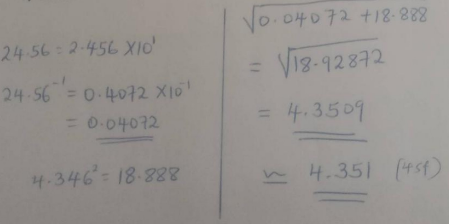 24.56 = 2.456 × 10¹
24.56⁻¹ = 0.4072 × 10⁻¹
= 0.04072
4.346² = 18.888
√0.04072 + 18.888
= √18.92872
= 4.3509
≃ 4.351 (4sf)